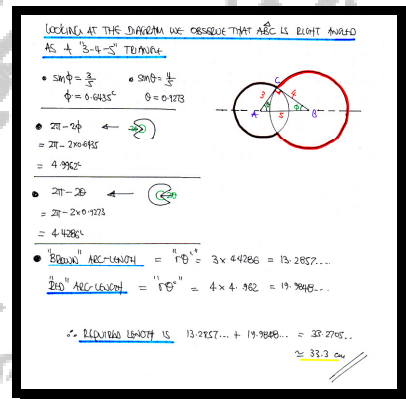 LOOKING AT THE DIAGRAM WE OBSERVE THAT AĈB IS RIGHT ANGLED
AS A "3-4-5" TRIANGLE
• sinϕ = 3/5 • sinθ = 4/5
ϕ = 0.6435ᶜ θ = 0.9273
C
3 4
θ ϕ
A 5 B
• 2π - 2ϕ ← 2ϕ
= 2π - 2×0.6435
= 4.9962ᶜ
• 2π - 2θ ← 2θ
= 2π - 2×0.9273
= 4.4286ᶜ
• "BROWN" ARC-LENGTH = "rθᶜ" = 3 × 4.4286 = 13.2857....
"RED" ARC-LENGTH = "rθᶜ" = 4 × 4.962 = 19.9848...
∴ REQUIRED LENGTH IS 13.2857... + 19.9848... = 33.2705..
≃ 33.3 cm